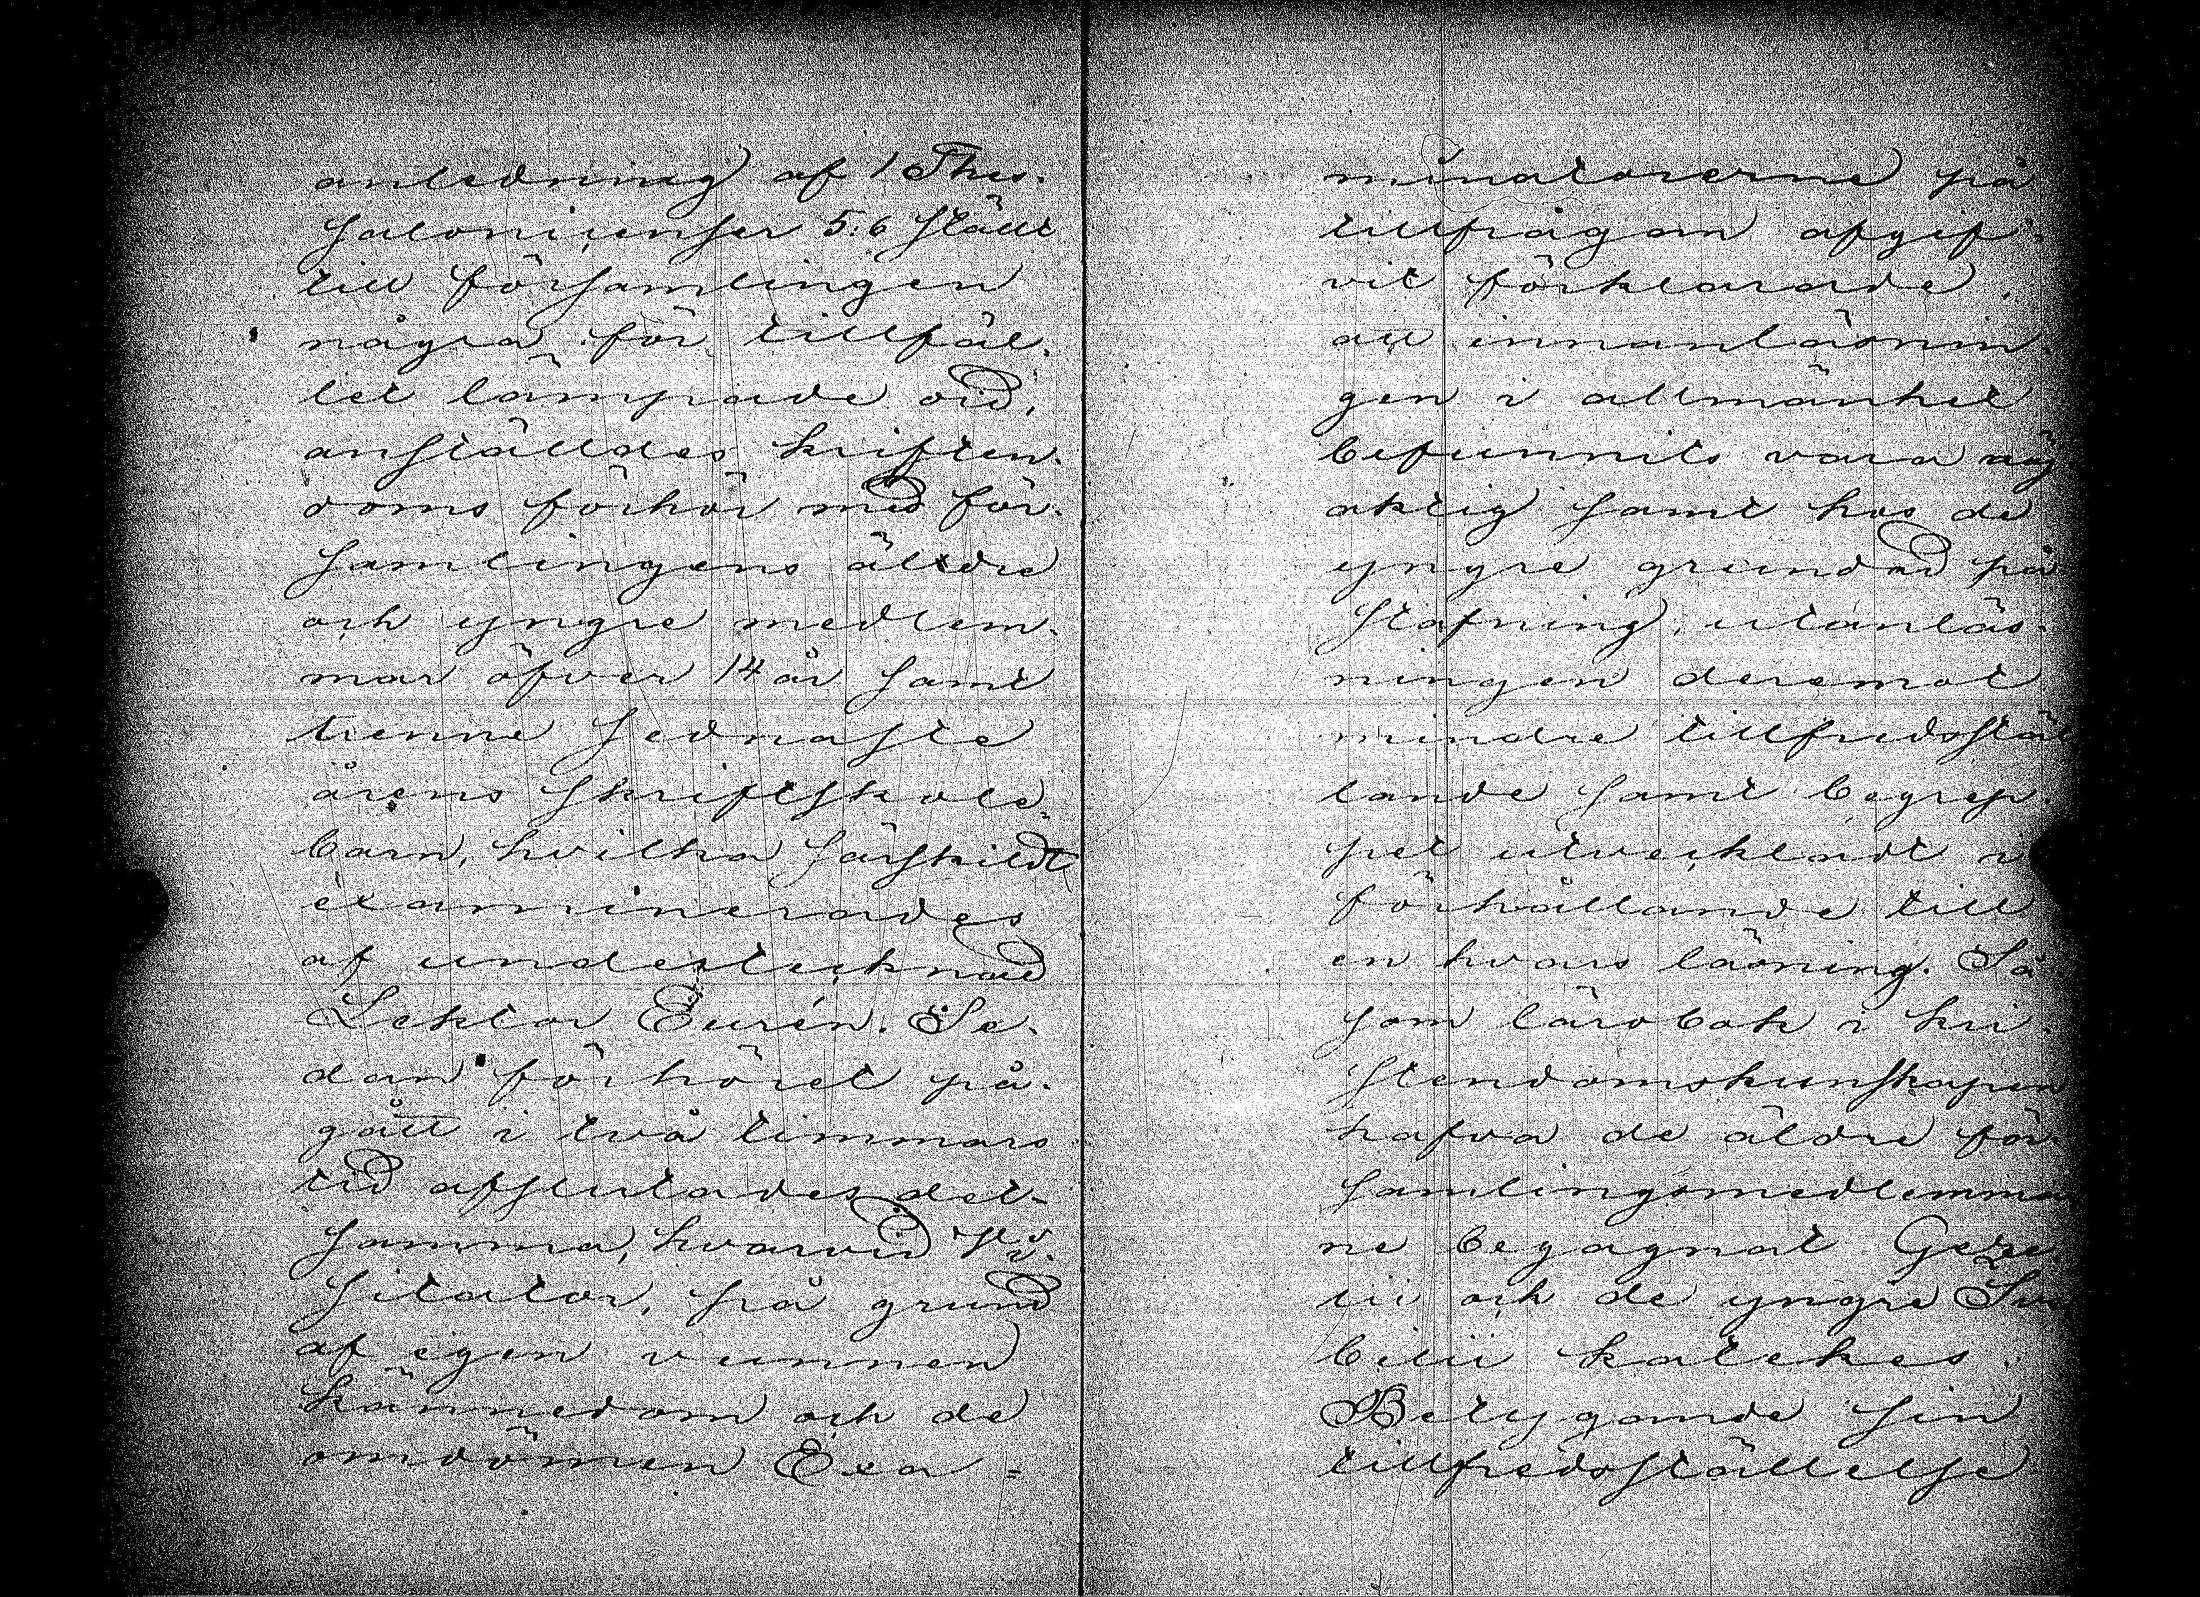 anledning af 1 Thes-
saloniienser 5:6 ställt
till församlingen
några för tillfäl-
let lämpade ord,
anställdes kristen-
doms förhör med för-
samlingens älxdre
och yngre medlem-
mar öfver 14 år samt
trenne sednaste
årens skriftskole-
barn, hvilka särskildt
examinerades
af undertecknad
Lektor Eurén. Se-
dan förhöret på-
gått i två timmars
tid afslutades det-
samma, hvarvid Vi-
sitator, på grund
af egen vunnen
kännedom och de
omdömen Exa-
minatorerne på
tillfrågan afgif-
vit förklarade,
att innanläsnin-
gen i allmänhet
befunnits vara nöj
aktig samt hos de
yngre grundad på
stafning, utanläs-
ningen deremot
mindre tillfredsstäl
lande samt begrep-
pet utveckladt i
förhållande till
en hvars läsning. Så
som lärobok i kri-
stendomskunskapen
hafva de äldre för-
samlingsmedlemmar
ne begagnat Geze-
lii och de yngre Sve
bilii katekes.
Betygande sin
tillfredsställelse